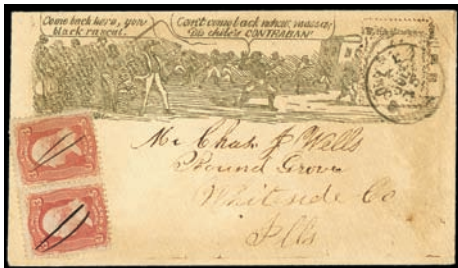 Come back here, you
black rascal.
Can't come back nohow, massa;
Dis chile's CONTRABAN'
Mr Chas J Wells
Round Grove
Whiteside Co
Ills
3
3